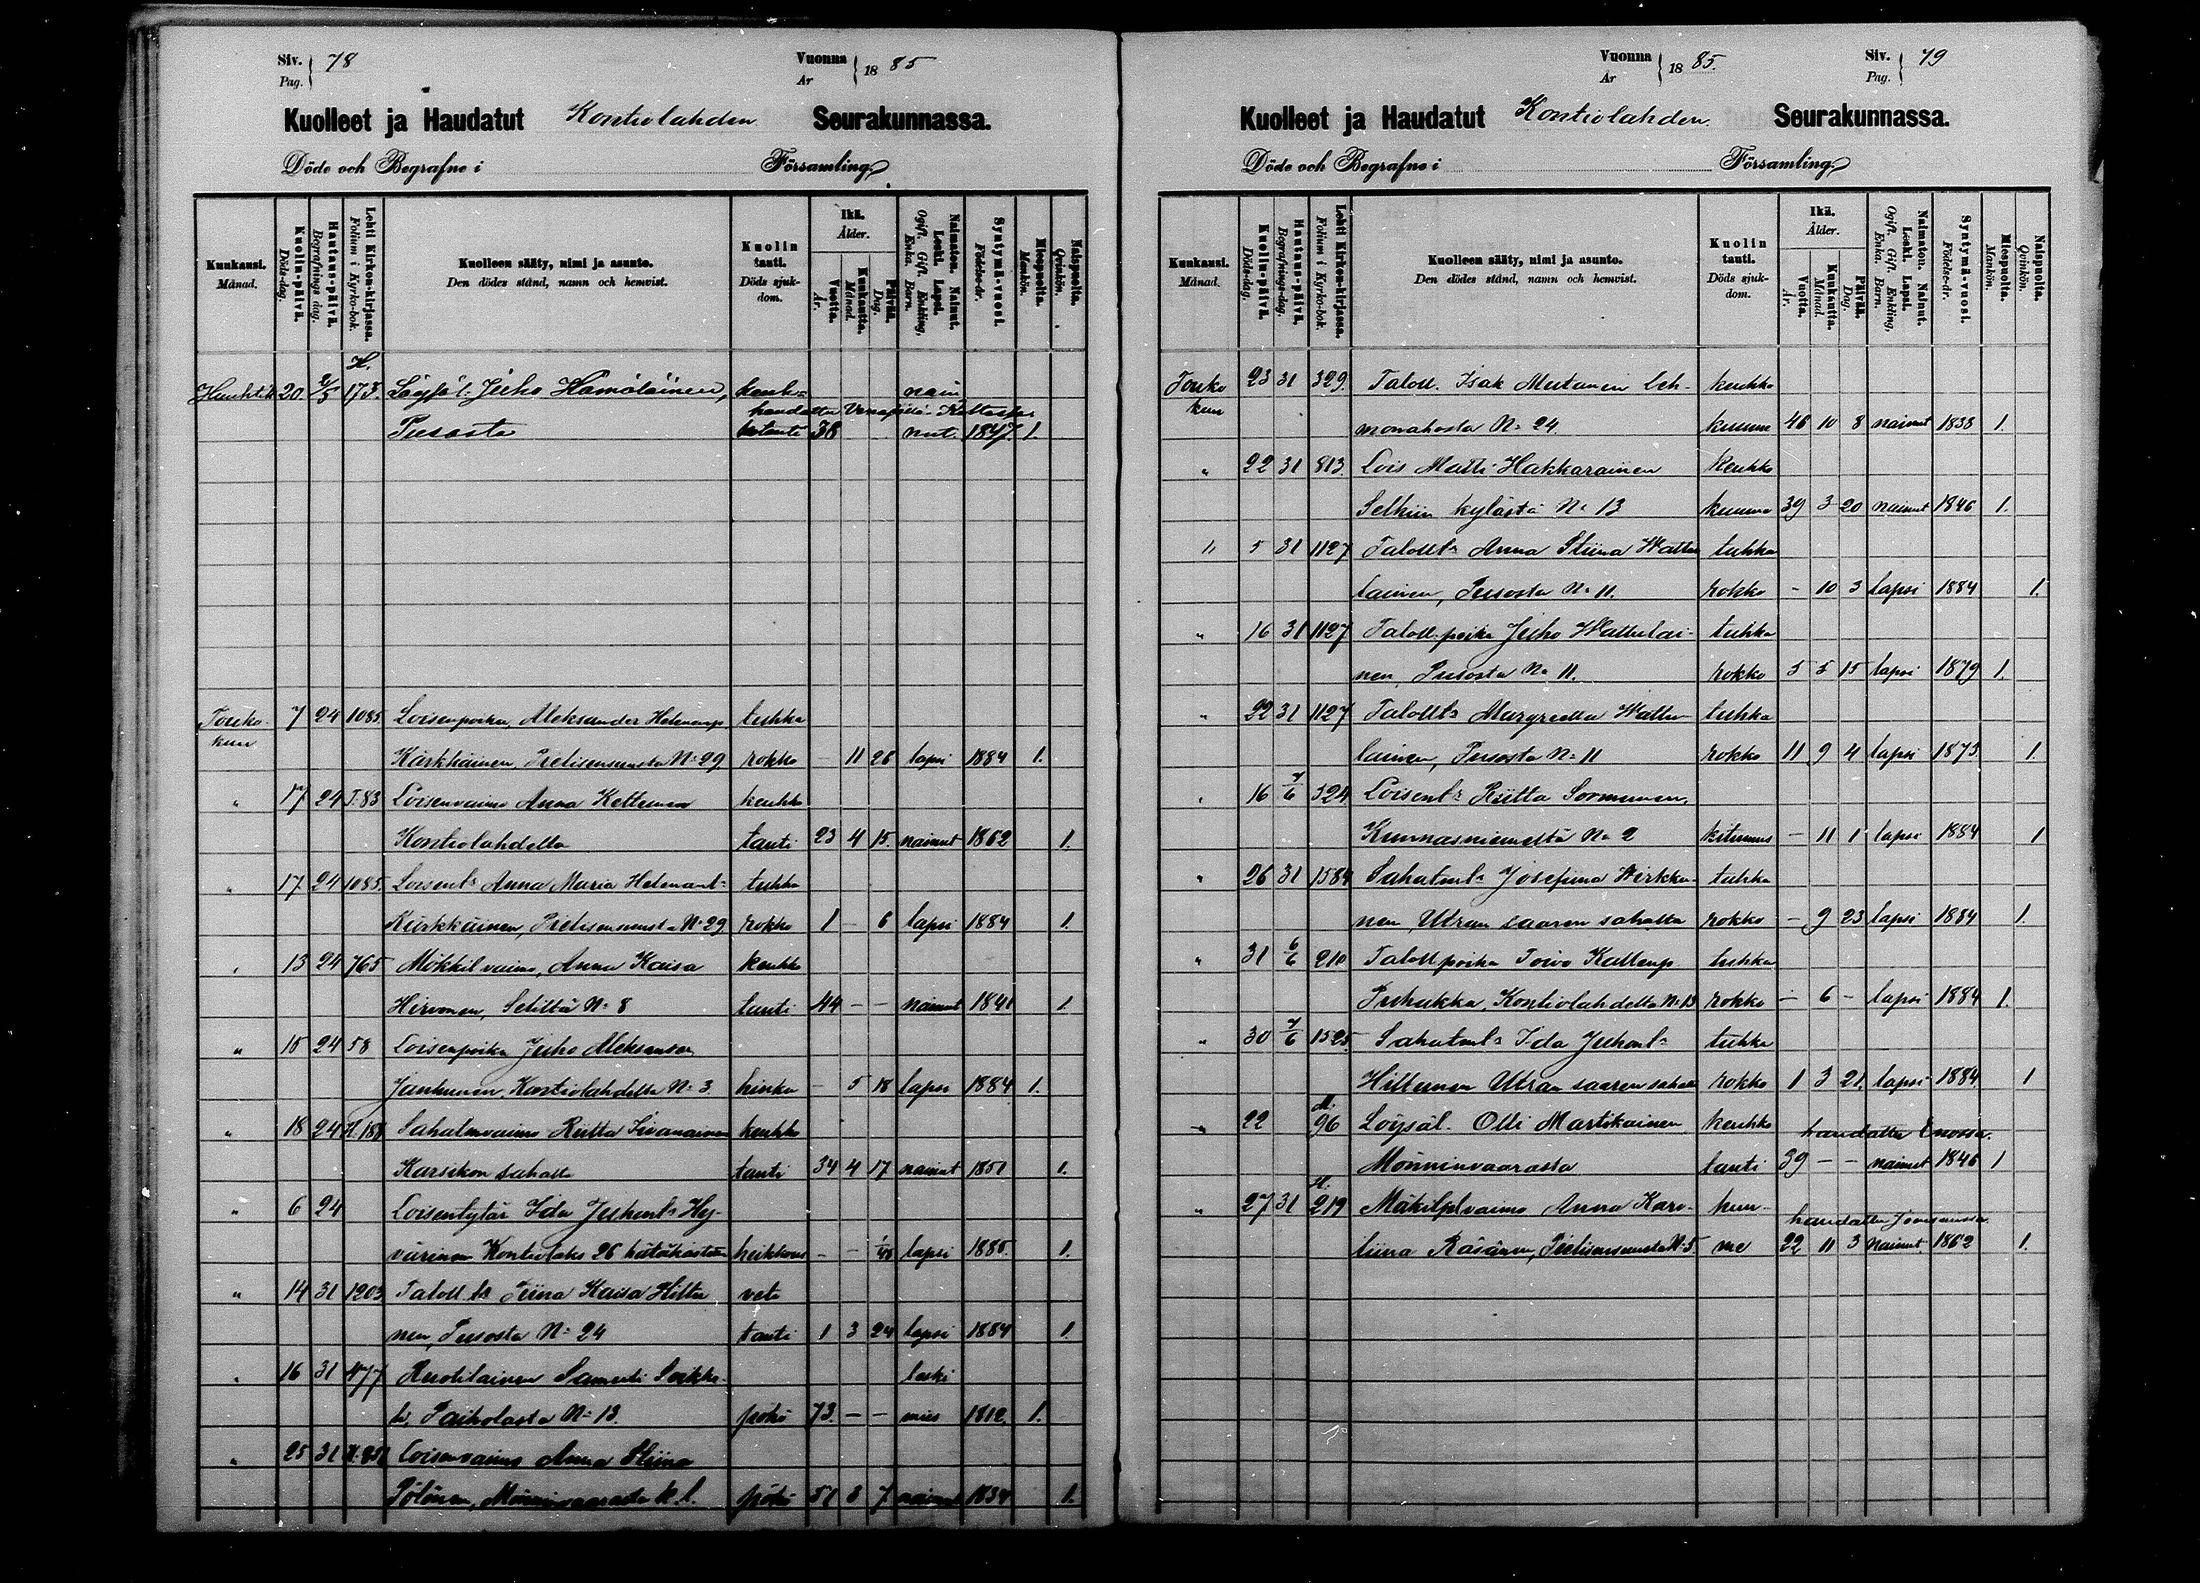 Siv. 78
Pag.
Vuonna 1885
År
Kuolleet ja Haudatut Kontiolahden Seurakunnassa.
Döde och Begrafne i Församling
Kuukausi. Månad.
Kuolin-päivä. Döds-dag.
Hautaus-päivä. Begrafnings dag.
Lehti Kirkon-kirjassa. Folium i Kyrko-bok.
Kuolleen sääty, nimi ja asunto.
Den dödes stånd, namn och hemvist.
Kuolin tauti. Döds sjukdom.
Ikä. Ålder.
Vuotta. År.
Kuukautta. Månad.
Päivää. Dag.
Naimaton. Nainut. Leski. Lapsi.
Ogift. Gift. Enkling, Enka. Barn.
Syntymä-vuosi. Födelse-år.
Miespuolta. Mankön.
Naispuolta. Qvinkön.
H.
Huhtik 20 2/5 173. Juho Hämäläinen, nai
haudattu
Pusosta tauti 38 nut. 1847. 1.
Touko- 7 24 1085. Loisenpoika, Aleksander Helenanp. tuhka
kuu
Kärkkäinen, Pielisensuusta N:29 rokko - 11 26 lapsi 1884 1.
" 17 24 J.83 Loisenvaimo Anna Kettunen keuhko
Kontiolahdelta tauti 23 4 15. nainut 1862 1.
" 17 24 1085. Loisent: Anna Maria Helenant: tuhka
Kärkkäinen, Pielisensuusta N:29 rokko 1 - 6 lapsi 1884 1.
" 13 24 765 Mökkil vaimo, Anna Kaisa keuhko
Hirvonen, N: 8 tauti 44 - - nainut 1841 1.
" 15 24 58 Loisenpoika Juho Aleksanp.
Janhunen, Kontiolahdelta N: 3 hinku - 5 18 lapsi 1884. 1.
" 18 24 H.188 Sahalmvaimo Riitta Sivonainen keuhko
Karsikon sahalta tauti 34 4 17 nainut 1851 1.
" 6 24 Loisentytär Ida Juhont: Hy-
värinen Kontiolahs 26 hätäkastettu heikkous - - lapsi 1885. 1.
" 14 31 1203 Taloll. tr Tiina Kaisa Hiltu vete
nen, Pusosta N: 24 tauti 1 3 24 lapsi 1884 1.
" 16 31 477 Ruotilainen Samuli leski
Paiholasta N: 13. pöhö 73. - - mies 1812. 1.
" 25 31 Loisenvaimo Anna Stiina
Pölönen, Mönninvaarasta k.l. pöhö 51 3 7 nainut 1834 1.
Vuonna 1885.
År
Siv. 79
Pag.
Kuolleet ja Haudatut Kontiolahden. Seurakunnassa.
Döde och Begrafne i Församling
Kuukausi. Månad.
Kuolin-päivä. Döds-dag.
Hautaus-päivä. Begrafnings-dag.
Lehti Kirkon-kirjassa. Folium i Kyrko-bok.
Kuolleen sääty, nimi ja asunto.
Den dödes stånd, namn och hemvist.
Kuolin tauti. Döds sjuk-dom.
Ikä. Ålder.
Vuotta. År.
Kuukautta. Månad.
Päivää. Dag.
Naimaton. Nainut. Leski. Lapsi.
Ogift. Gift. Enkling, Enka. Barn.
Syntymä-vuosi. Födelse-år.
Miespuolta. Mankön.
Naispuolta. Qvinkön.
Touko 23 31 329. Taloll. Isak Mutanen Leh- keuhko
kuu
monahosta N: 24. kuume 46 10 8 nainut 1838 1.
" 22 31 813. Lois Matti Hakkarainen keuhko
Selkiin kylästä N: 13 kuume 39 3 20 nainut 1846 1.
" 5 31 1127 Talollt: Anna Stiina Wattu tuhka
lainen, Pusosta N: 11. rokko - 10 3 lapsi 1884 1.
" 16 31 1127 Taloll. poika Juho Wattulai- tuhka
nen, Pusosta N: 11. rokko 5 5 15 lapsi 1879 1.
" 22 31 1127 Talollt: Margreetta Wattu- tuhka
lainen, Pusosta N: 11 rokko 11 9 4 lapsi 1873. 1.
" 16 7/6 324 Loisent: Riitta Sormunen,
Kunnasniemeltä N: 2 kitumus - 11 1 lapsi 1884 1
" 26 31 1584 Sahalmt: Josefiina Wirkku- tuhka
nen, Utran saaren sahalta rokko - 9 23 lapsi 1884 1.
" 31 6/6 210 Taloll poika Toivo Kallenp. tuhka
Puhakka, Kontiolahdelta N: 13 rokko - 6 - lapsi 1884 1.
" 30 7/6 1525. Sahalmt: Ida Juhont: tuhka
Hiltunen Utran saaren sahalta rokko 1 3 21. lapsi 1884. 1
M.
" 22 96 Löysäl. Olli Martikainen keuhko haudattu Enossa.
Mönninvaarasta tauti 39 - - nainut 1846 1
H.
" 27 31 219 Mäkitplvaimo Anna Karo- kuu- haudattu Joensuussa
liina Räsänen, Pielisensuusta N: 5. me 22 11 3 nainut 1862 1.